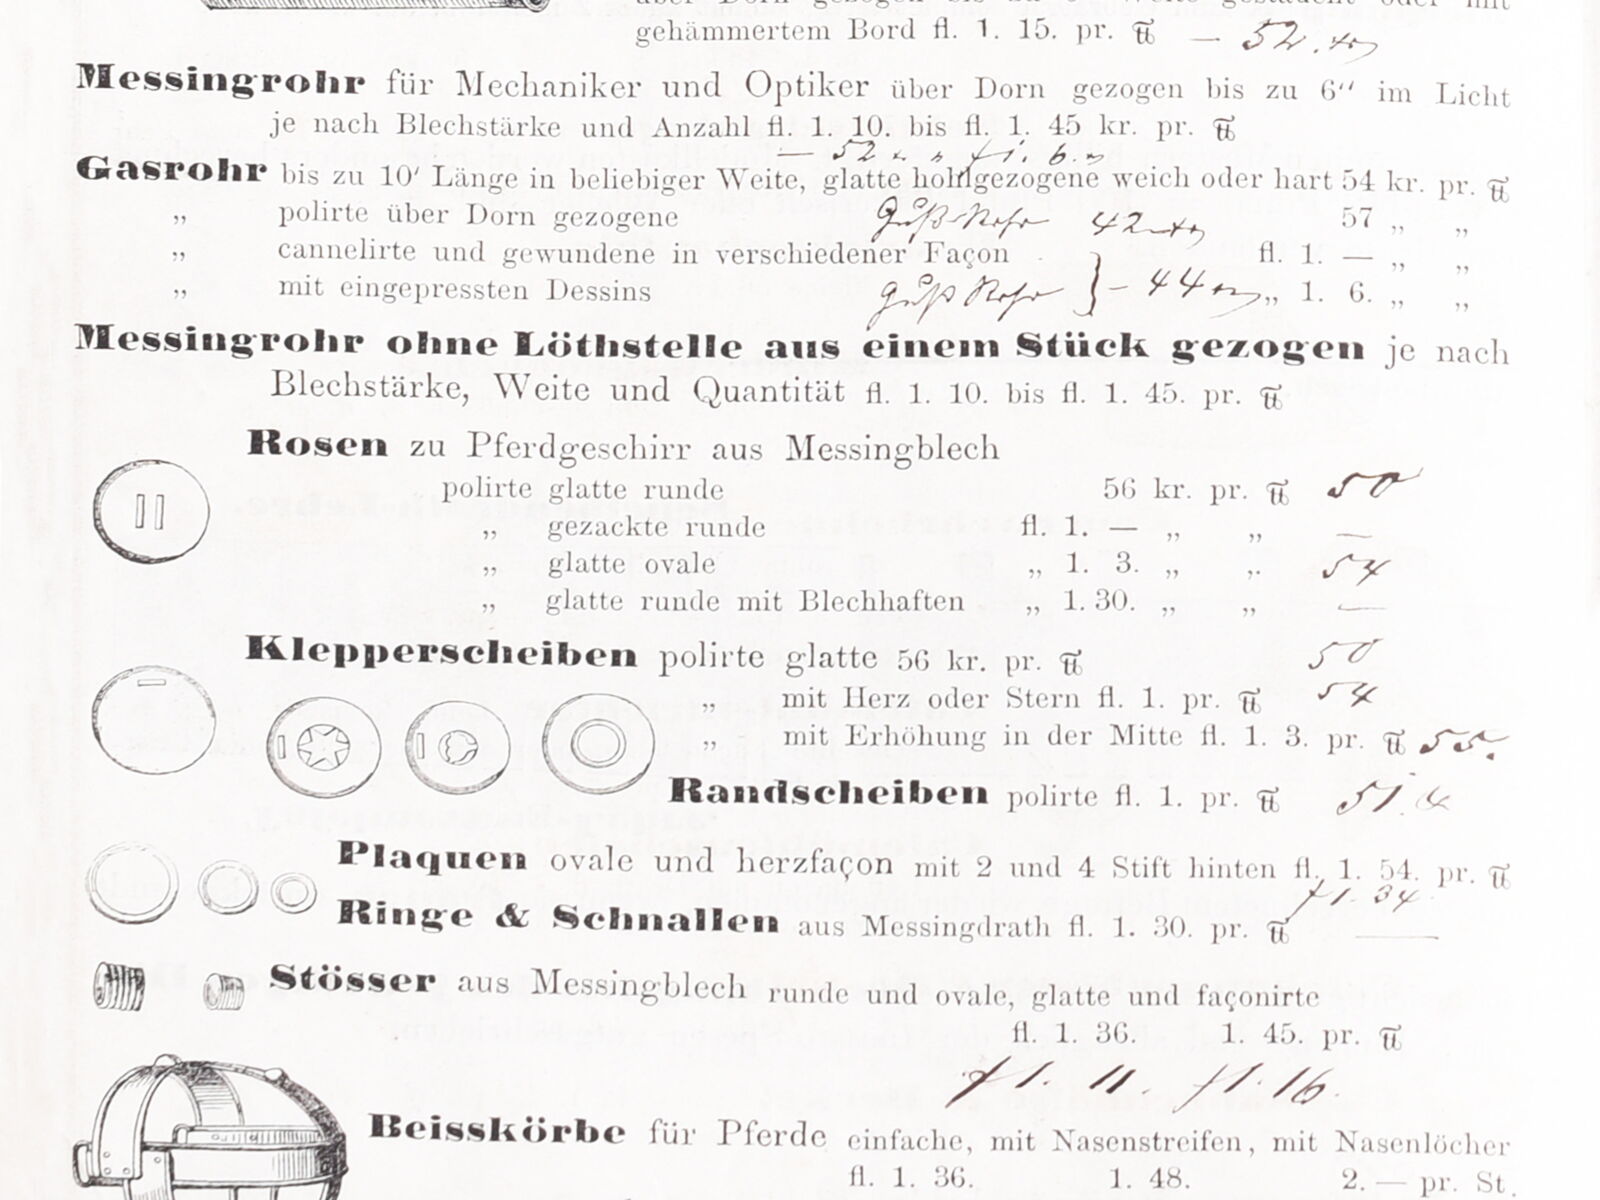 gehämmertem Bord fl. 1. 15. pr. ℔ — 52. kr
Messingrohr für Mechaniker und Optiker über Dorn gezogen bis zu 6“ im Licht
je nach Blechstärke und Anzahl fl. 1. 10. bis fl. 1. 45 kr. pr. ℔
— 52 „ „ fl. 6. „
Gasrohr bis zu 10' Länge in beliebiger Weite, glatte hohlgezogene weich oder hart 54 kr. pr. ℔
„ polirte über Dorn gezogene Guß Rohr 42 kr 57 „ „
„ cannelirte und gewundene in verschiedener Façon fl. 1. — „ „
„ mit eingepressten Dessins Guß Rohr } – 44 kr „ 1. 6. „ „
Messingrohr ohne Löthstelle aus einem Stück gezogen je nach
Blechstärke, Weite und Quantität fl. 1. 10. bis fl. 1. 45. pr. ℔
Rosen zu Pferdgeschirr aus Messingblech
polirte glatte runde 56 kr. pr. ℔ 50
„ gezackte runde fl. 1. — „ „ —
„ glatte ovale „ 1. 3. „ „ 54
„ glatte runde mit Blechhaften „ 1. 30. „ „ —
Klepperscheiben polirte glatte 56 kr. pr. ℔ 50
„ mit Herz oder Stern fl. 1. pr. ℔ 54
„ mit Erhöhung in der Mitte fl. 1. 3. pr. ℔ 55.
Randscheiben polirte fl. 1. pr. ℔ 51.
Plaquen ovale und herzfaçon mit 2 und 4 Stift hinten fl. 1. 54. pr. ℔
fl. 34
Ringe & Schnallen aus Messingdrath fl. 1. 30. pr. ℔ —
Stösser aus Messingblech runde und ovale, glatte und façonirte
fl. 1. 36. 1. 45. pr. ℔
fl. 11. fl. 16.
Beisskörbe für Pferde einfache, mit Nasenstreifen, mit Nasenlöcher
fl. 1. 36. 1. 48. 2. — pr. St.